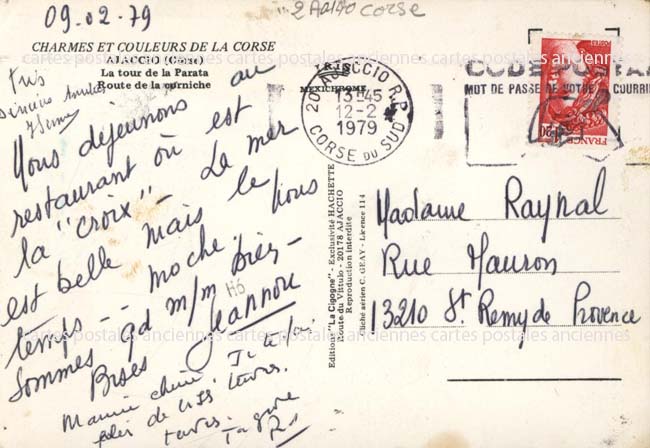 09-02-79
2A0190 Corse
CHARMES ET COULEURS DE LA CORSE
AJACCIO (Corse)
La tour de la Parata
Route de la corniche
IRIS
MEXICHROME
20 AJACCIO R.P.
13H45
12-2
1979
CORSE DU SUD
CODE POSTAL
MOT DE PASSE DE VOTRE COURRIER
FRANCE
1,20
Nous déjeunons au
restaurant où est
la "croix" - La mer
est belle mais le
temps - - moche, nous
sommes qd m/m bien -
Bises Jeannou
Mamie chérie. Je te fais
plein de
Editions "La Cigogne" - Exclusivité HACHETTE
Route du Vittulo - 20178 AJACCIO
Reproduction interdite
Cliché aérien C. GEAY - Licence 114
Madame Raynal
Rue Mauron
13210 St Remy de Provence
cartes postales anciennes cartes postales anciennes cartes postales anciennes